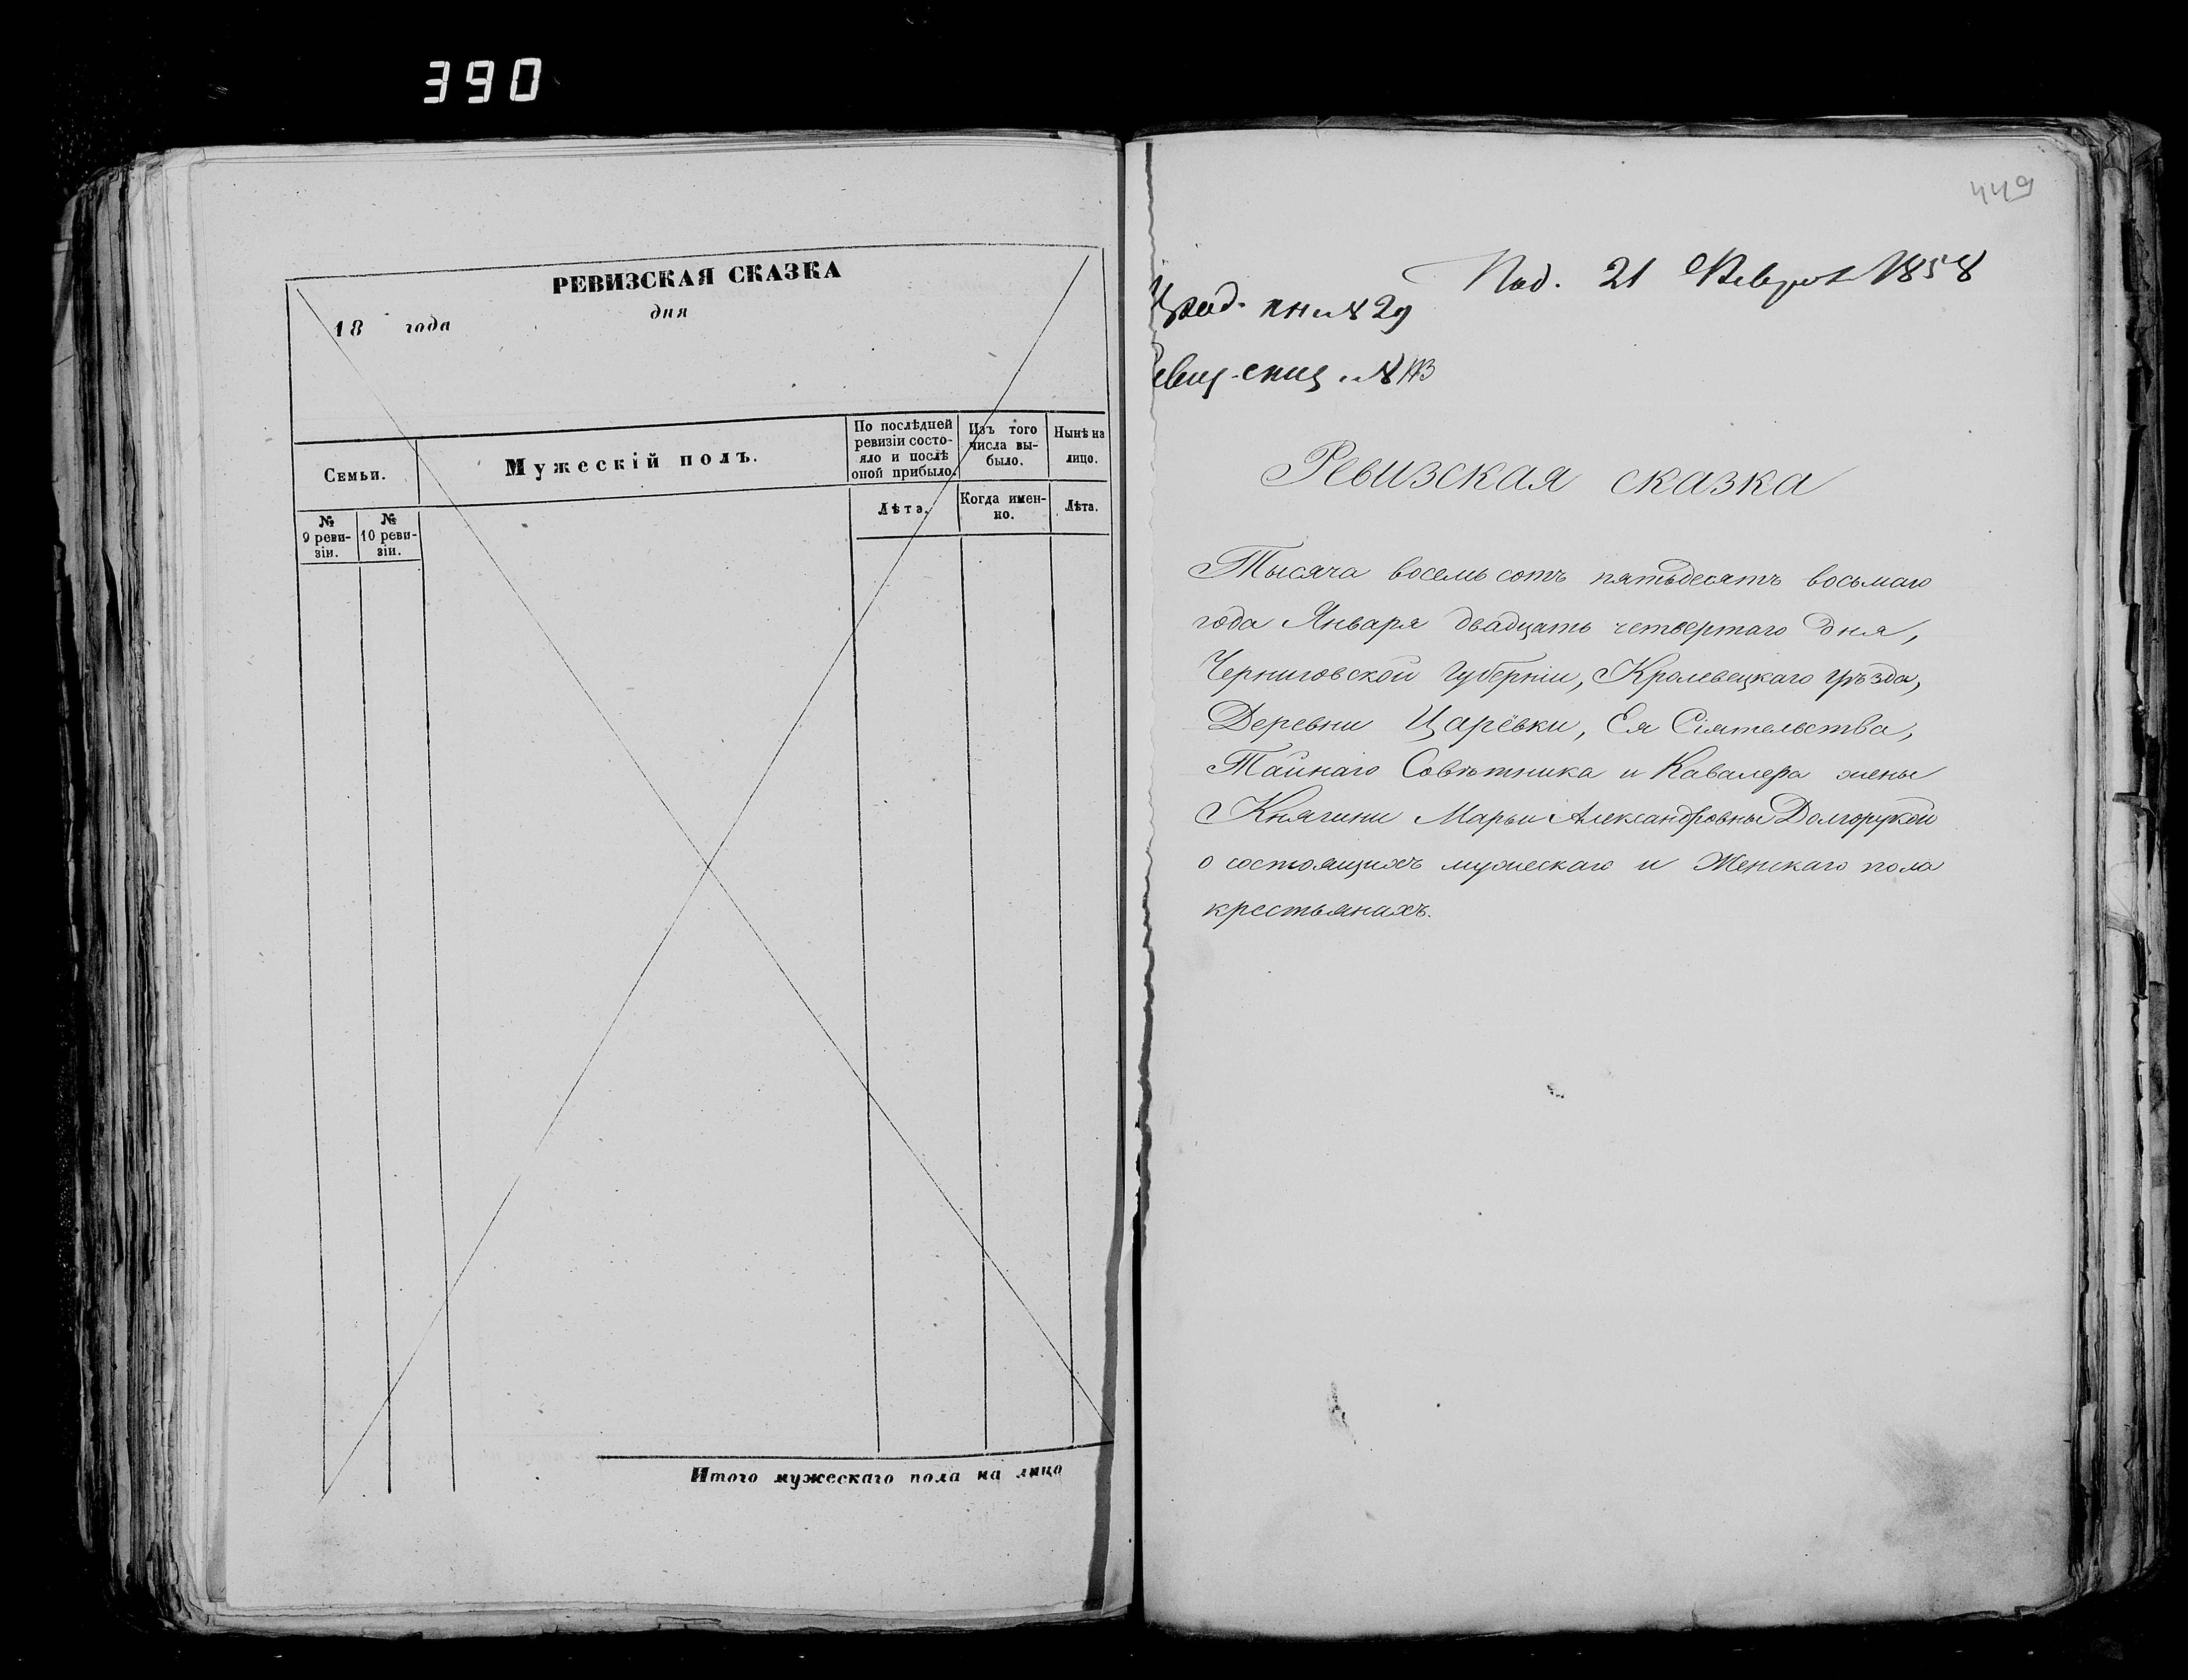 390
РЕВИЗСКАЯ СКАЗКА
18 года дня
Семьи.
Мужескій полъ.
По послѣдней ревизіи состо-
яло и послѣ
оной прибыло.
Изъ того
числа вы-
было.
Нынѣ на
лицо.
№
9 реви-
зіи.
№
10 реви-
зіи.
Лѣта.
Когда имен-
но.
Лѣта.
Итого мужескаго пола на лицо
449
Под. 21 Февраля 1858
кн. № 29
№ 113
Ревизская сказка
Тысяча восемь сотъ пятьдесятъ восьмаго
года Января двадцать четвертаго дня,
Черниговской губерніи, Кролевецкаго уѣзда,
Деревни Царёвки, Ея Сіятельства,
Тайнаго Совѣтника и Кавалера жены
Княгини Марьи Александровны Долгорукой
о состоящихъ мужескаго и Женскаго пола
крестьянахъ.